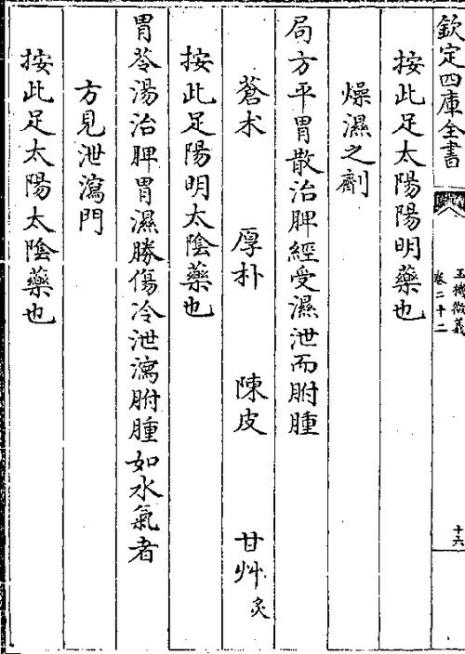 欽定四庫全書
玉機微義
卷二十二
十六
按此足太陽陽明藥也
燥濕之劑
局方平胃散治脾經受濕泄而胕腫
蒼朮 厚朴 陳皮 甘艸炙
按此足陽明太陰藥也
胃苓湯治脾胃濕勝傷冷泄瀉胕腫如水氣者
方見泄瀉門
按此足太陽太陰藥也